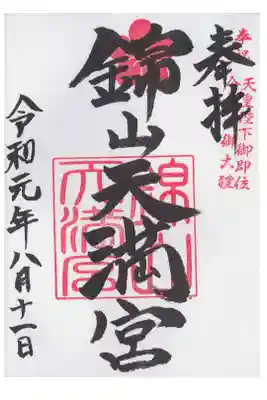 奉拝
天皇陛下御即位
御大禮
錦山天満宮
錦山
天満宮
令和元年八月十一日